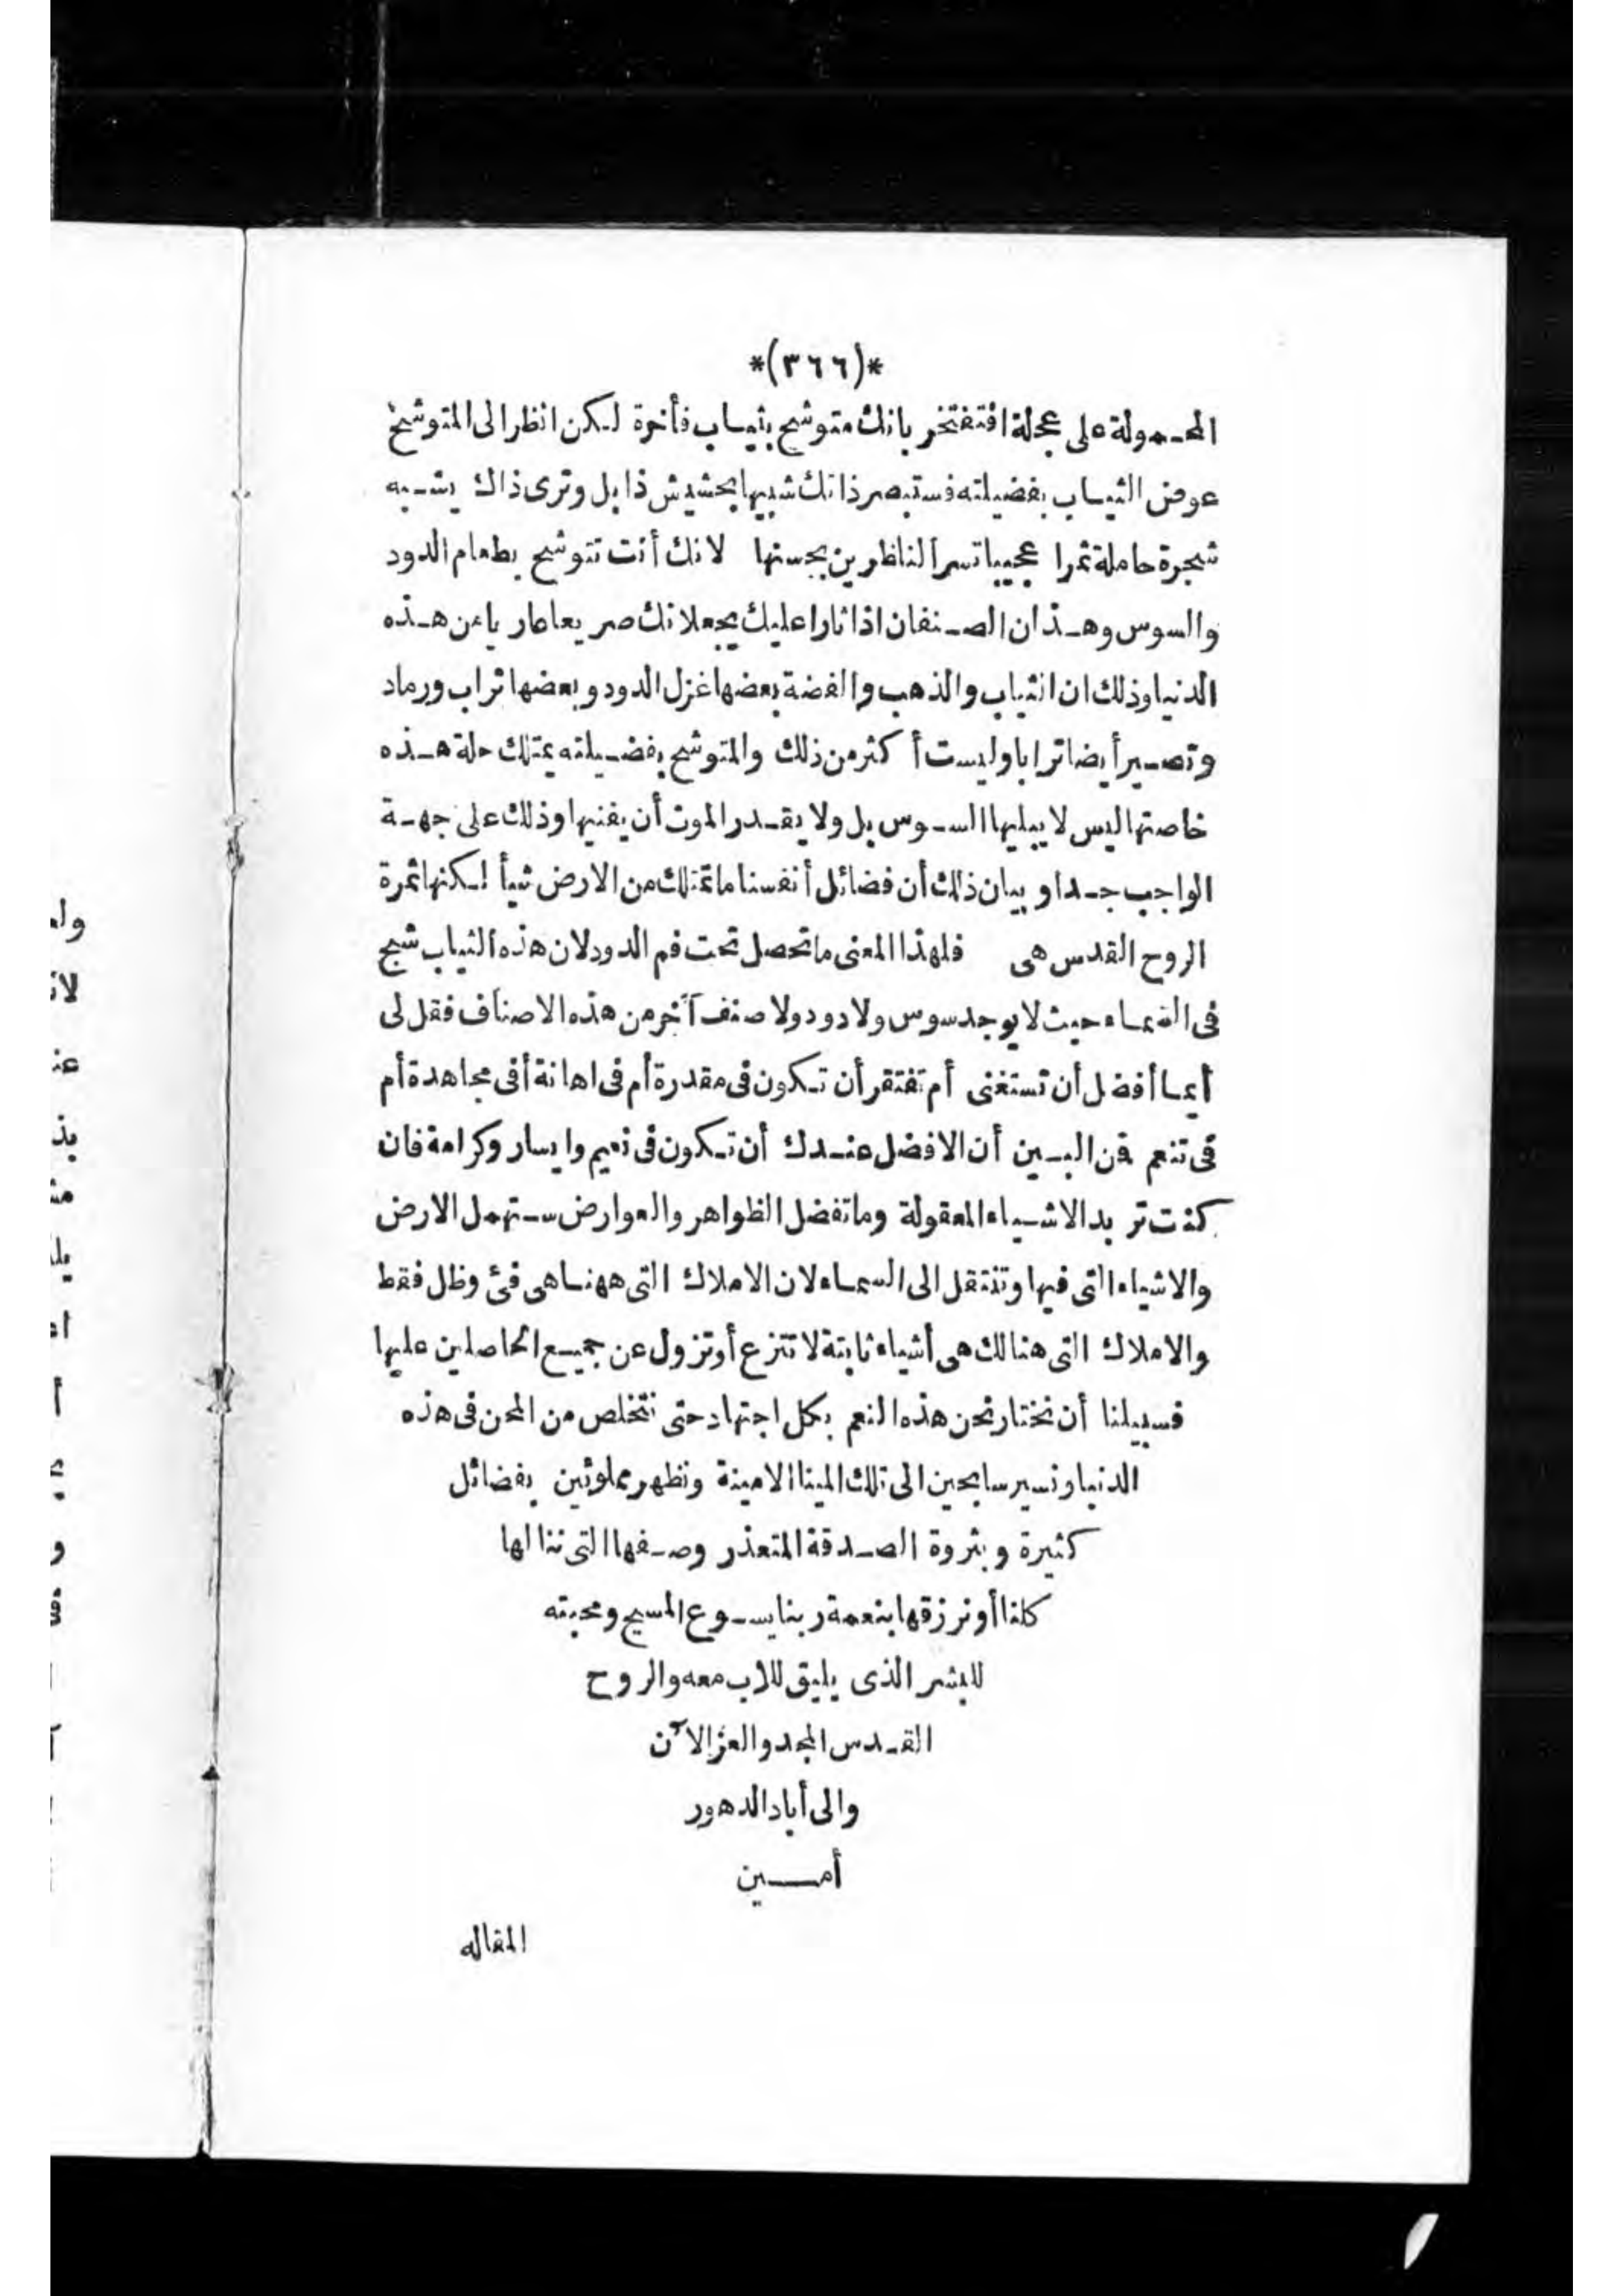 *(٣٦٦)*
المحمولة على عجلة افتفتخر بانك متوشح بثياب فأخرة لكن انظر الى المتوشح
عوض الثياب بفضيلته فستبصر ذاتك شبيها بحشيش ذابل وترى ذاك يشبه
شجرة حاملة ثمرا عجيبا تسر الناظرين بحسنها لانك أنت تتوشح بطعام الدود
والسوس وهذان الصنفان اذا ثارا عليك يجعلانك صريعا عاريا من هذه
الدنيا وذلك ان الثياب والذهب والفضة بعضها غزل الدود وبعضها تراب ورماد
وتصير أيضا ترابا وليست أكثر من ذلك والمتوشح بفضيلته يمتلك حلة هذه
خاصتها اليس لا يبليها السوس بل ولا يقدر الموت أن يفنيها وذلك على جهة
الواجب جدا وبيان ذلك أن فضائل أنفسنا ما تمتلك من الارض شيأ لكنها ثمرة
الروح القدس هى فلهذا المعنى ما تحصل تحت فم الدود لان هذه الثياب تنسج
فى السماء حيث لا يوجد سوس ولا دود ولا صنف آخر من هذه الاصناف فقل لى
أيما أفضل أن تستغنى أم تفتقر أن تكون فى مقدرة أم فى اهانة أفى مجاهدة أم
فى تنعم فمن البين أن الافضل عندك أن تكون فى نعيم وايسار وكرامة فان
كنت تريد الاشياء المعقولة وما تفضل الظواهر والعوارض ستهمل الارض
والاشياء التى فيها وتنتقل الى السماء لان الاملاك التى ههنا هى فئ وظل فقط
والاملاك التى هنالك هى أشياء ثابتة لا تنزع أو تزول عن جميع الحاصلين عليها
فسبيلنا أن نختار نحن هذه النعم بكل اجتهاد حتى نتخلص من المحن فى هذه
الدنيا ونسير سابحين الى تلك المينا الامينة ونظهر مملوئين بفضائل
كثيرة وبثروة الصدقة المتعذر وصفها التى ننالها
كلنا أو نرزقها بنعمة ربنا يسوع المسيح ومحبته
للبشر الذى يليق للاب معه والروح
القدس المجد والعز الآن
والى أباد الدهور
أمين
المقاله